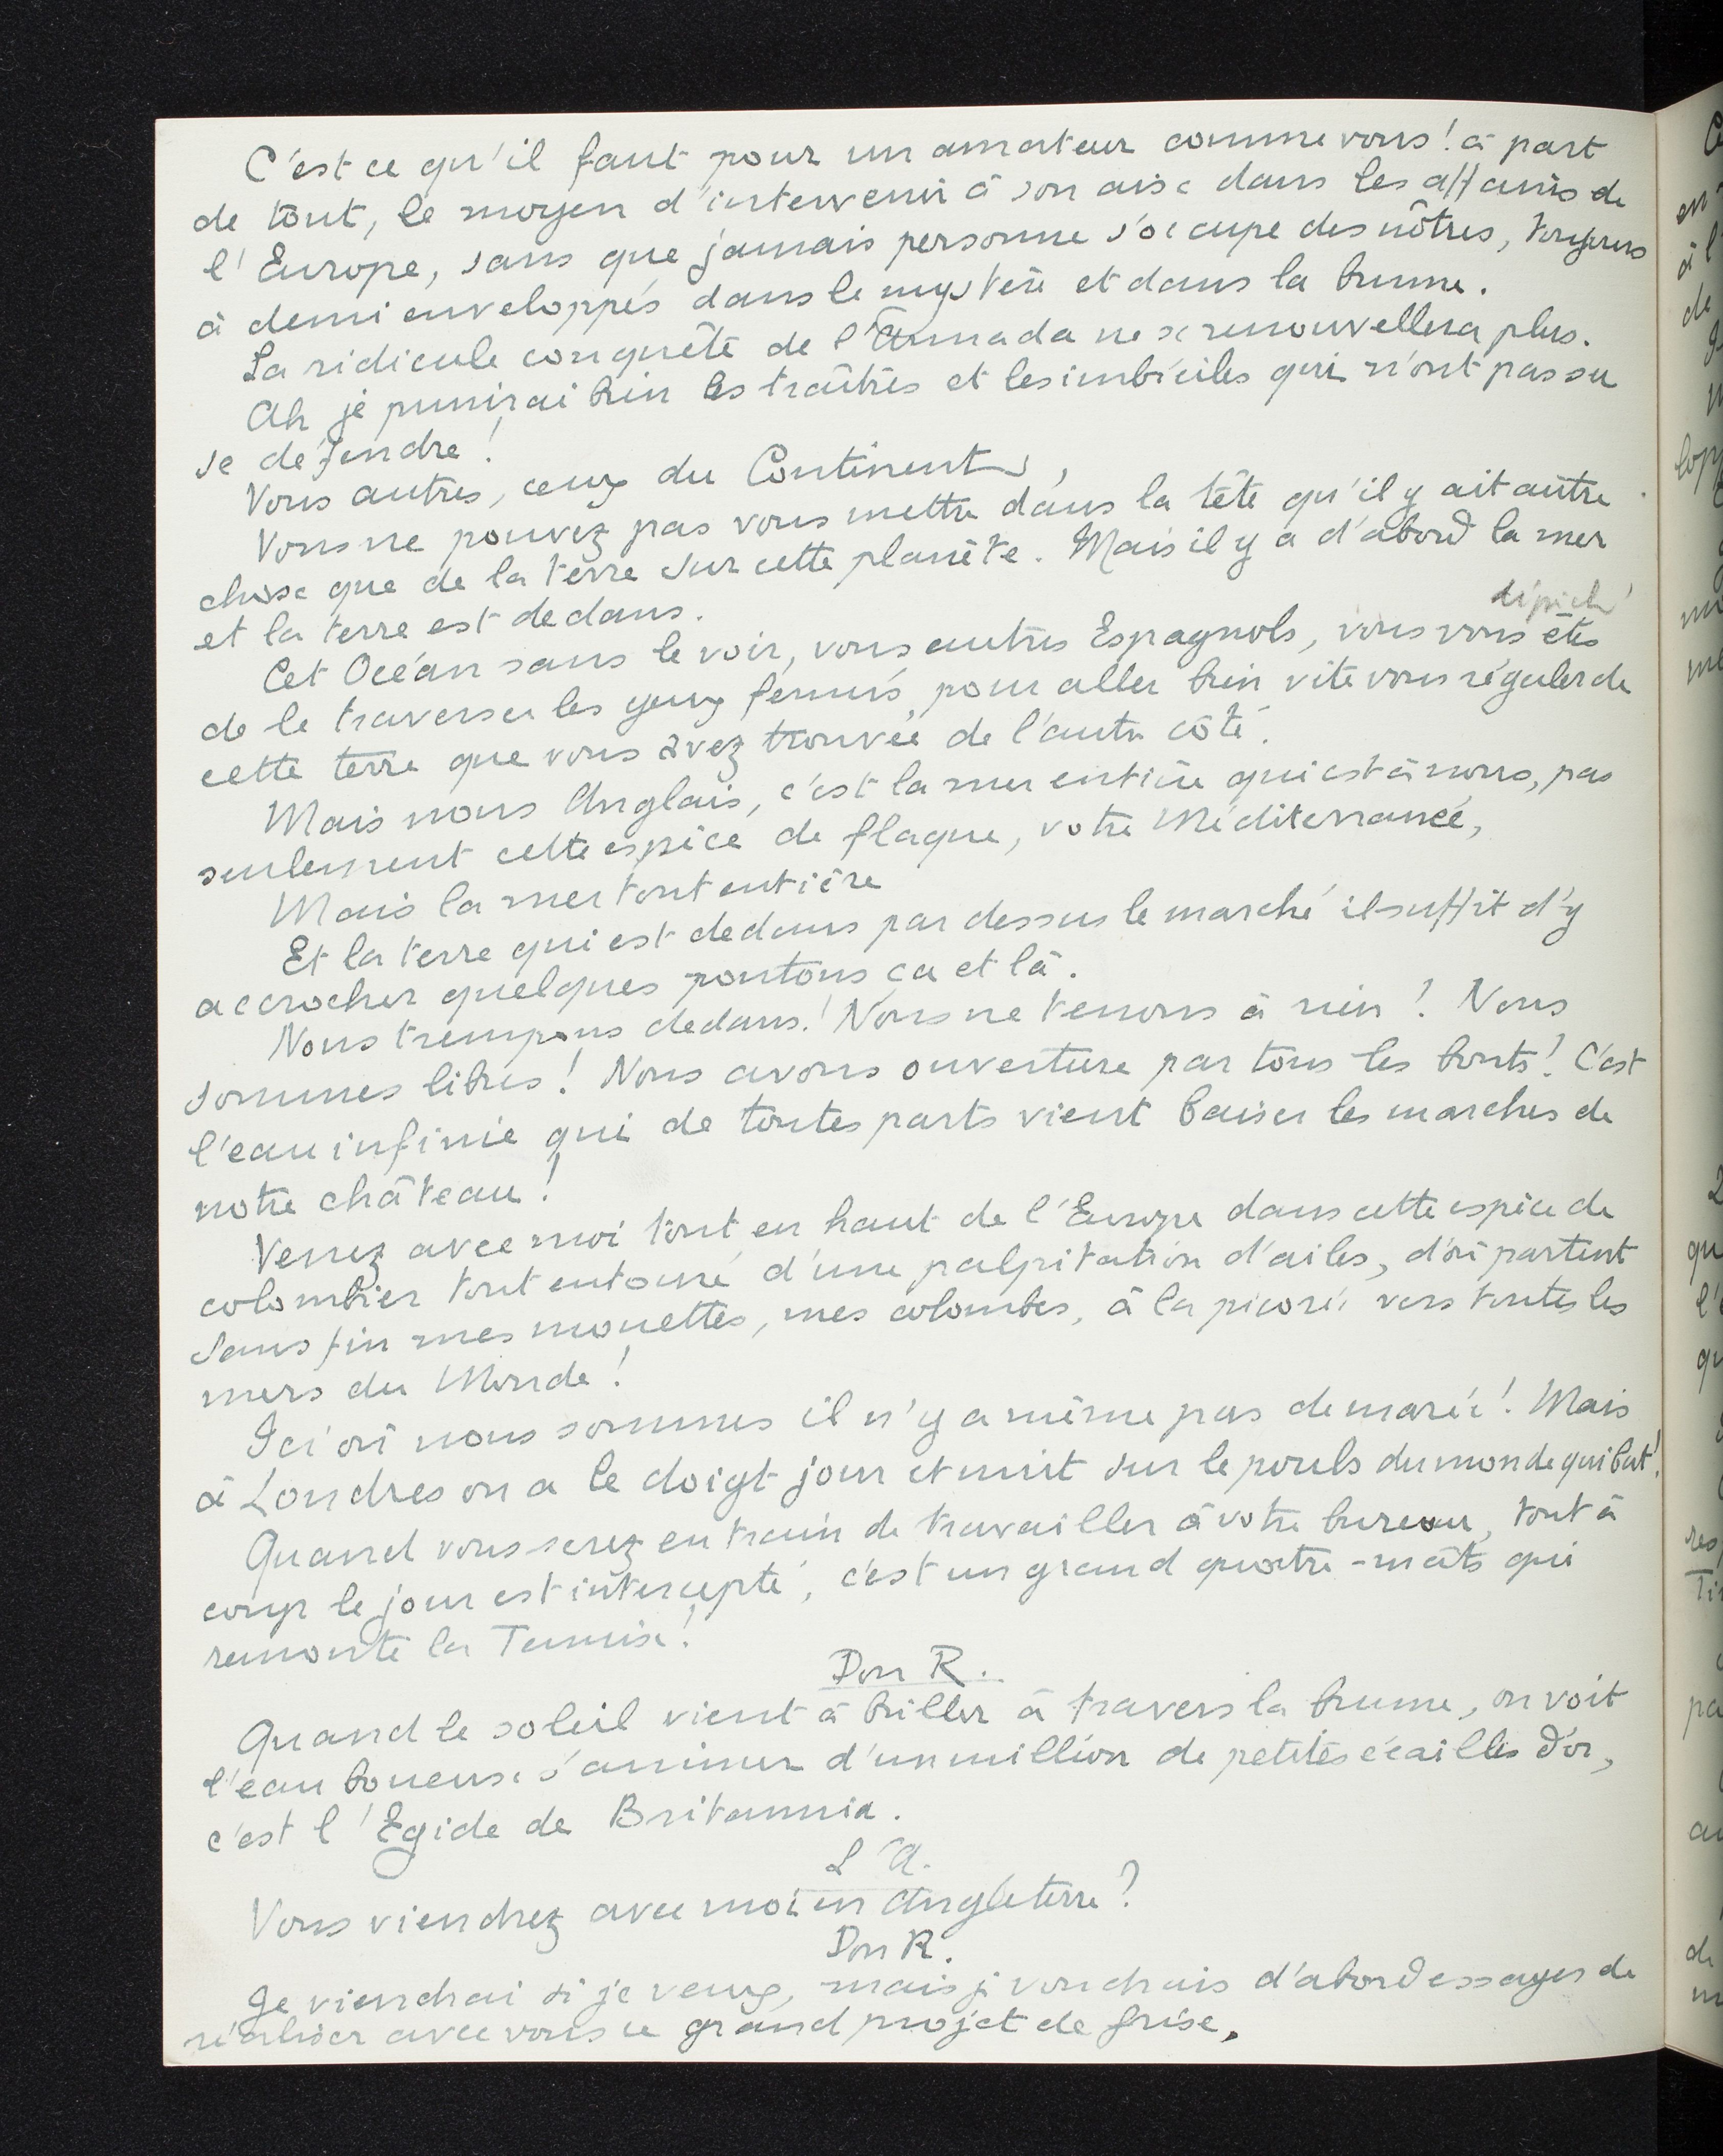 C'est ce qu'il faut pour un amateur comme vous ! à part
de tout, le moyen d'intervenir à son aise dans les affaires de
l'Europe, sans que jamais personne s'occupe des nôtres, toujours
à demi enveloppés dans le mystère et dans la brume.
La ridicule conquête de l'Armada ne se renouvellera plus.
Ah je punirai bien les traîtres et les imbéciles qui n'ont pas su
se défendre !
Vous autres, ceux du Continent,
Vous ne pouvez pas vous mettre dans la tête qu'il y ait autre
chose que de la terre sur cette planète. Mais il y a d'abord la mer
et la terre est dedans.
dépêché
Cet Océan sans le voir, vous autres Espagnols, vous vous êtes
de le traverser les yeux fermés, pour aller bien vite vous régaler de
cette terre que vous avez trouvée de l'autre côté.
Mais nous Anglais, c'est la mer entière qui est à nous, pas
seulement cette espèce de flaque, votre Méditerranée,
Mais la mer tout entière
Et la terre qui est dedans par dessus le marché il suffit d'y
accrocher quelques pontons ça et là.
Nous trempons dedans ! Nous ne tenons à rien ! Nous
sommes libres ! Nous avons ouverture par tous les bouts ! C'est
l'eau infinie qui de toutes parts vient baiser les marches de
notre château !
Venez avec moi tout en haut de l'Europe dans cette espèce de
colombier tout entouré d'une palpitation d'ailes, d'où partent
sans fin mes mouettes, mes colombes, à la picorée vers toutes les
mers du Monde !
Ici où nous sommes il n'y a même pas de marée ! Mais
à Londres on a le doigt jour et nuit sur le pouls du monde qui bat !
Quand vous serez en train de travailler à votre bureau, tout à
coup le jour est intercepté, c'est un grand quatre-mâts qui
remonte la Tamise !
Don R.
Quand le soleil vient à briller à travers la brume, on voit
l'eau boueuse s'animer d'un million de petites écailles d'or,
c'est l'Egide de Britannia.
L'A.
Vous viendrez avec moi en Angleterre ?
Don R.
Je viendrai si je veux, mais je voudrais d'abord essayer de
réaliser avec vous ce grand projet de frise,